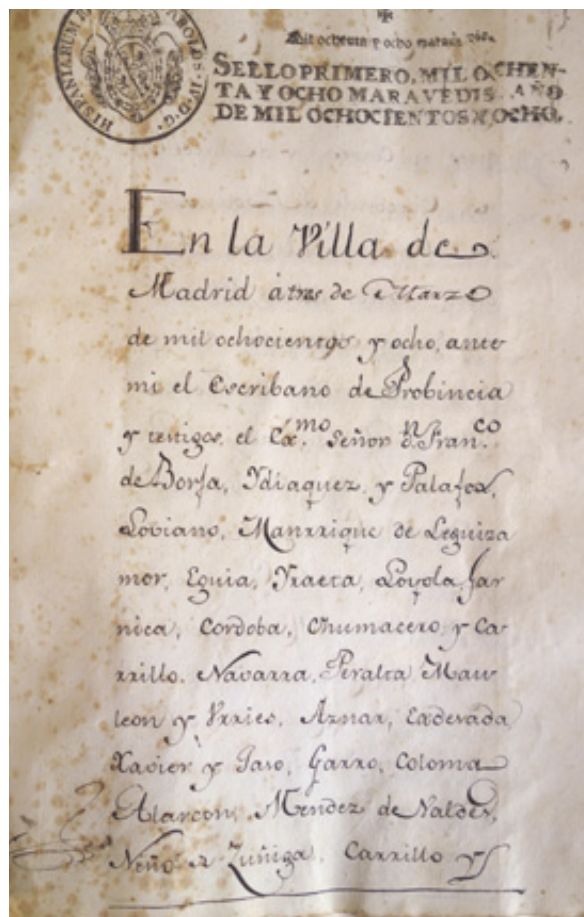 HISPANIARUM
CAROLUS·IV·D·G·
✠
Mil ochenta y ocho marav dis.
SELLO PRIMERO, MIL OCHEN-
TA Y OCHO MARAVEDIS, AÑO
DE MIL OCHOCIENTOS Y OCHO.
En la Villa de
Madrid á tres de Marzo
de mil ochocientos y ocho, ante
mi el Escribano de Probincia
y testigos, el Exc.mo Señor D.n Fran.co
de Borja, Ydiaquez, y Palafox,
Loviano, Manrrique de Leguiza
mor, Eguia, Yraeta, Loyola, Jar
nica, Cordoba, Chumacero, y Ca-
rrillo, Navarra, Peralta Mau
leon y Vrries, Aznar, Exderada
Xavier y Jaso, Garro, Coloma
Alarcon, Mendez de Valdes,
Niño de Zuñiga, Carrillo y